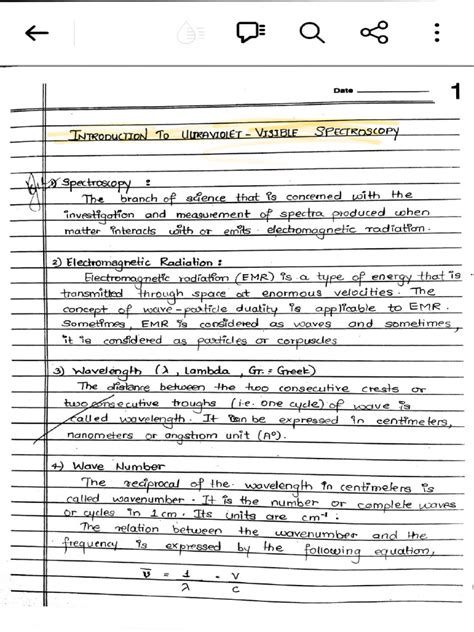 Date
1
INTRODUCTION TO ULTRAVIOLET - VISIBLE SPECTROSCOPY
1) Spectroscopy :
The branch of science that is concerned with the
investigation and measurement of spectra produced when
matter interacts with or emits electromagnetic radiation.
2) Electromagnetic Radiation :
Electromagnetic radiation (EMR) is a type of energy that is
transmitted through space at enormous velocities. The
concept of wave-particle duality is applicable to EMR.
Sometimes, EMR is considered as waves and sometimes,
it is considered as particles or corpuscles
3) Wavelength (λ, lambda, Gr. = Greek)
The distance between the two consecutive crests or
two consecutive troughs (i.e. one cycle) of wave is
called wavelength. It can be expressed in centimeters,
nanometers or angstrom unit (A°).
4) Wave Number
The reciprocal of the wavelength in centimeters is
called wavenumber. It is the number or complete waves
or cycles in 1 cm. Its units are cm⁻¹.
The relation between the wavenumber and the
frequency is expressed by the following equation,
v̅ = 1/λ = v/c